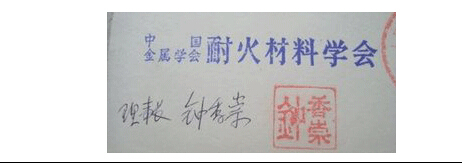 中国
金属学会 耐火材料学会
理事長 钟香崇
钟香崇